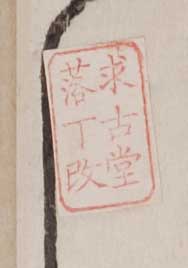 求古堂
落丁改